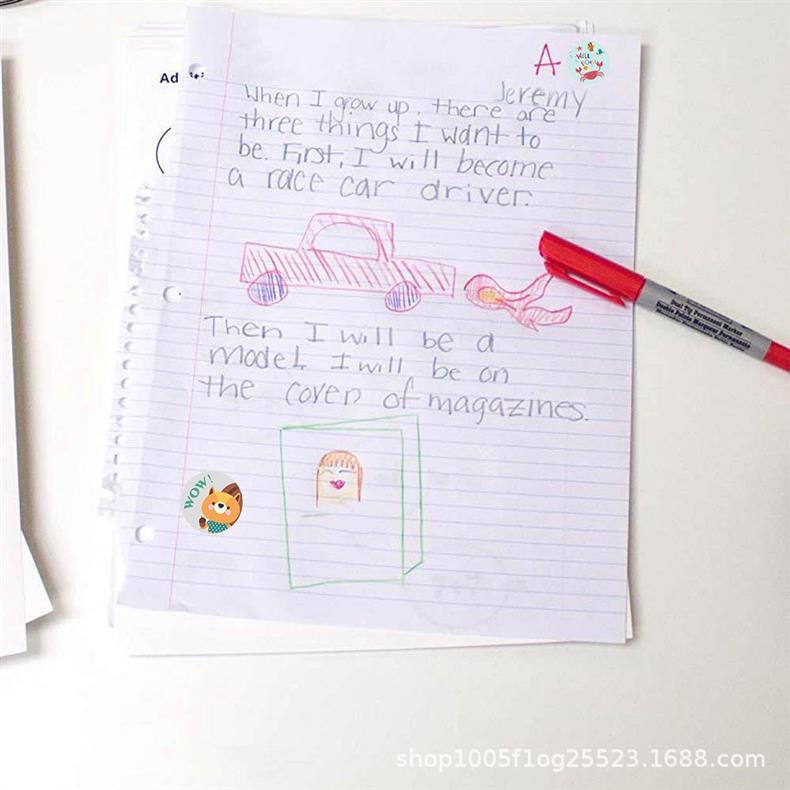 A
Jeremy
When I grow up, there are
three things I want to
be. First, I will become
a race car driver.
Then I will be a
model I will be on
the cover of magazines.
WOW!
Dual Tip Permanent Marker
shop1005f1og25523.1688.com